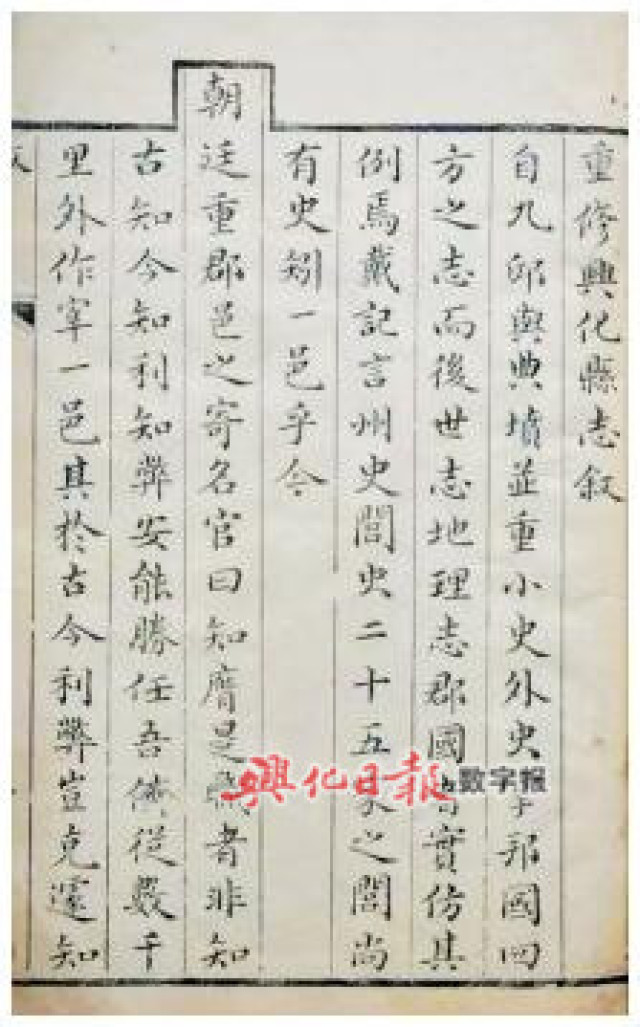 重修興化縣志叙
自九邱與典墳並重小史外史邦國四
方之志而後世志地理志郡國實仿其
例焉戴記言州史閭史二十五之閭尚
有史矧一邑乎今
朝廷重郡邑之寄名官曰知膺是者非知
古知今知利知弊安能勝任吾儕從數千
里外作宰一邑其於古今利弊豈克遽知
興化日報 数字报